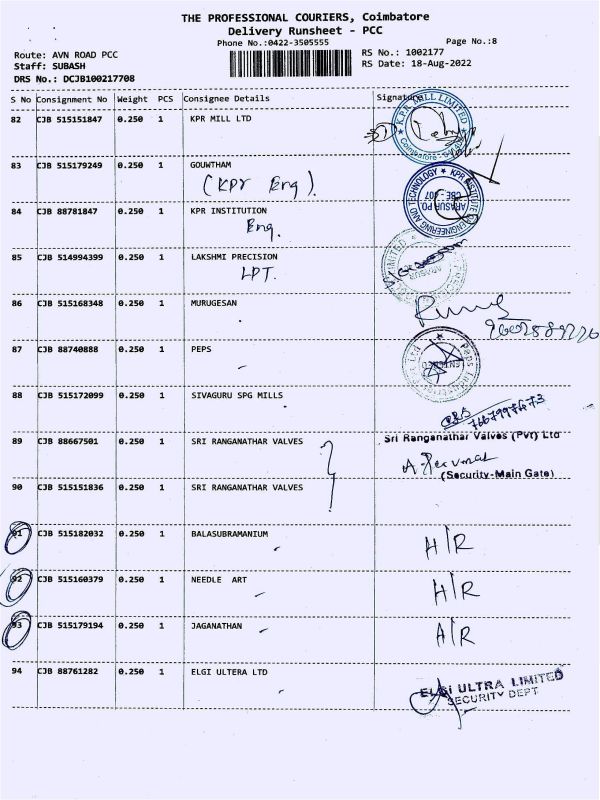 THE PROFESSIONAL COURIERS, Coimbatore
Delivery Runsheet - PCC
Phone No.:0422-3505555
Page No.:8
Route: AVN ROAD PCC
RS No.: 1002177
Staff: SUBASH
RS Date: 18-Aug-2022
DRS No.: DCJB100217708
S No Consignment No Weight PCS Consignee Details Signature
82 CJB 515151847 0.250 1 KPR MILL LTD
K.P.R. MILL LIMITED
Coimbatore
83 CJB 515179249 0.250 1 GOUWTHAM
(KPr Eng).
KPR INSTITUTE OF ENGINEERING AND TECHNOLOGY
ARASUR PO.
CBE - 407
84 CJB 88781847 0.250 1 KPR INSTITUTION
Eng.
85 CJB 514994399 0.250 1 LAKSHMI PRECISION
LPT.
LIMITED
86 CJB 515168348 0.250 1 MURUGESAN
87 CJB 88740888 0.250 1 PEPS
Peps Industries
88 CJB 515172099 0.250 1 SIVAGURU SPG MILLS
89 CJB 88667501 0.250 1 SRI RANGANATHAR VALVES
Sri Ranganathar Valves (Pvt) Ltd
(Security-Main Gate)
90 CJB 515151836 0.250 1 SRI RANGANATHAR VALVES
91 CJB 515182032 0.250 1 BALASUBRAMANIUM
H/R
92 CJB 515160379 0.250 1 NEEDLE ART
H/R
93 CJB 515179194 0.250 1 JAGANATHAN
A/R
94 CJB 88761282 0.250 1 ELGI ULTERA LTD
ELGI ULTRA LIMITED
SECURITY DEPT